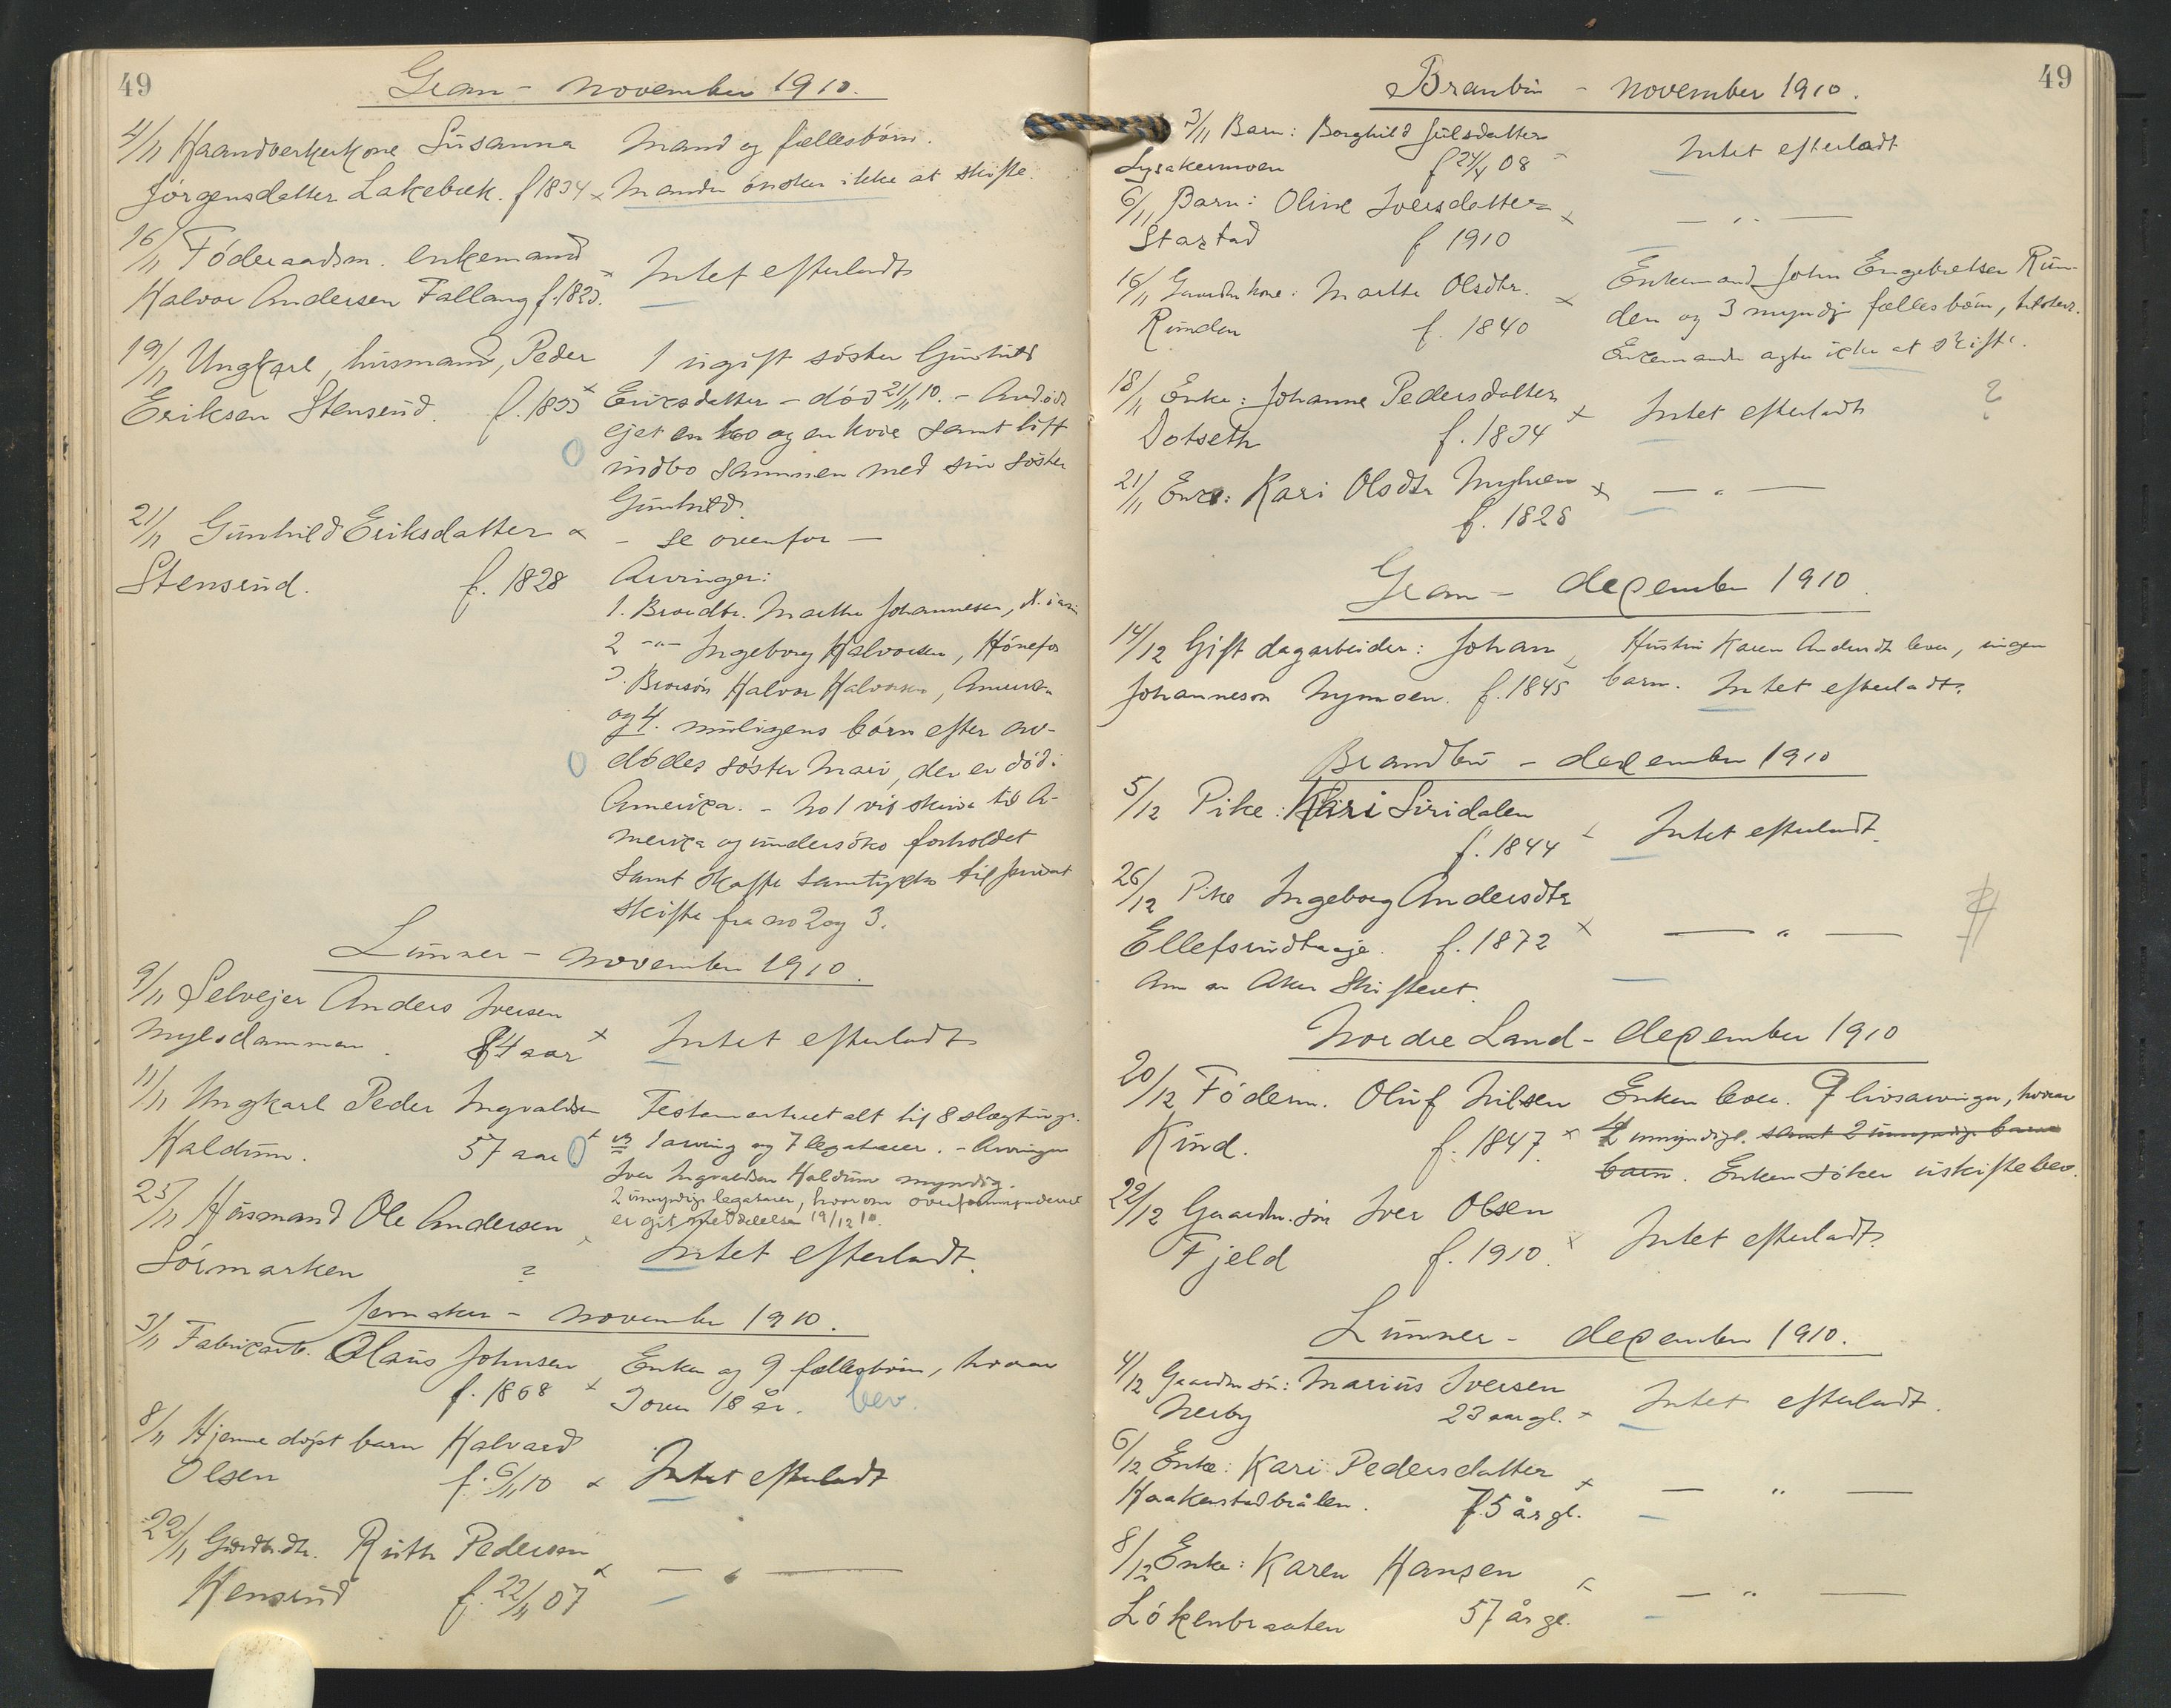 49
Gran - november 1910.
4/11 Haandverkerkone Susanna Mand og fællesbörn.
Jörgensdatter Lakebæk. f 1834 x Manden önsker ikke at skifte.
16/11 Föderaadsm. enkemand
Halvor Andersen Fallang f. 1825. x Intet efterladt
19/11 Ungkarl, husmand, Peder 1 ugift söster Gunhild
Eriksen Stensrud. f. 1833 x Eriksdatter - död 21/11 10. - Avdöde
ejet en ko og en kvie samt litt
indbo sammen med sin söster
Gunhild.
21/11 Gunhild Eriksdatter x - se ovenfor -
Stensrud. f. 1828 Arvinger:
1. Brordtr. Marthe Johannesen,
2 -"- Ingeborg Halvorsen, Hönefos
3. Brorsön Halvor Halvorsen, Amerika
og 4. muligens börn efter av-
dödes söster Mari, der er död i
Amerika. - No 1 vil skrive til A-
merika og undersöke forholdet
samt skaffe samtykke til privat
skifte fra no 2 og 3.
Lunner - november 1910.
9/11 Selvejer Anders Iversen
Mylsdammen. 84 aar x Intet efterladt
11/11 Ungkarl Peder Ingvaldsen Testamentert alt til 8 slægtninge.
Haldum. 57 aar x 1 arving og 7 legatarer. - Arvingen
Iver Ingvaldsen Haldum myndig.
2 umyndige legatarer, hvorom overformynderiet
er git meddelelse 19/12 10.
25/11 Husmand Ole Andersen
Sörmarken ? Intet efterladt.
Jevnaker - november 1910.
3/11 Fabrikarb. Olaus Johnsen Enke og 9 fællesbörn, hvorav
f. 1868 x 3 over 18 år. bev.
8/11 Hjemmedøpt barn Halvard
Olsen f. 6/11 10 x Intet efterladt
22/11 Gårdbr.dtr. Ruth Pedersen
Hensrud f. 22/11 07 x - " -
49
Branbu - november 1910.
3/11 Barn: Borghild Julsdatter Intet efterladt
Lysakermoen f 24/4 08
6/11 Barn: Oline Iversdatter x - " -
Staxtad f 1910
16/11 Gaardm. kone: Marthe Olsdtr. x Enkemand John Engebretsen Run-
Runden f. 1840 den og 3 myndige fællesbörn,
Enkemanden agter ikke at skifte.
18/11 Enke: Johanne Pedersdatter x Intet efterladt ?
Dotseth f. 1834
21/11 Enke: Kari Olsdtr Myhren x - " -
f. 1828
Gran - december 1910.
14/12 Gift dagarbeider: Johan Hustru Karen Andersdt lever, ingen
Johanneson Nymoen. f. 1845 barn. Intet efterladt.
Brandbu - december 1910
5/12 Pike: Kari Siridalen
f. 1844 Intet efterladt.
26/12 Pike Ingeborg Andersdtr
Ellefsrudhauje. f. 1872 x - " -
Anm. av Aker Skifteret.
Nordre Land - december 1910
20/12 Föderm. Oluf Nilsen Enken lever. 9 livsarvinger, hvorav
Kind. f. 1847. x 2 umyndige. samt 2 umyndige barne
barn. Enken söker uskiftebev.
22/12 Gaardm. sön Iver Olsen
Fjeld f. 1910. x Intet efterladt.
Lunner - december 1910.
4/12 Gaardm sön: Marius Iversen Intet efterladt.
Nerby 23 aar gl. x
6/12 Enke: Kari Pedersdatter x - " -
Haakenstadbråten. 75 år gl.
8/12 Enke: Karen Hansen x - " -
Lökenbraaten 57 år gl.